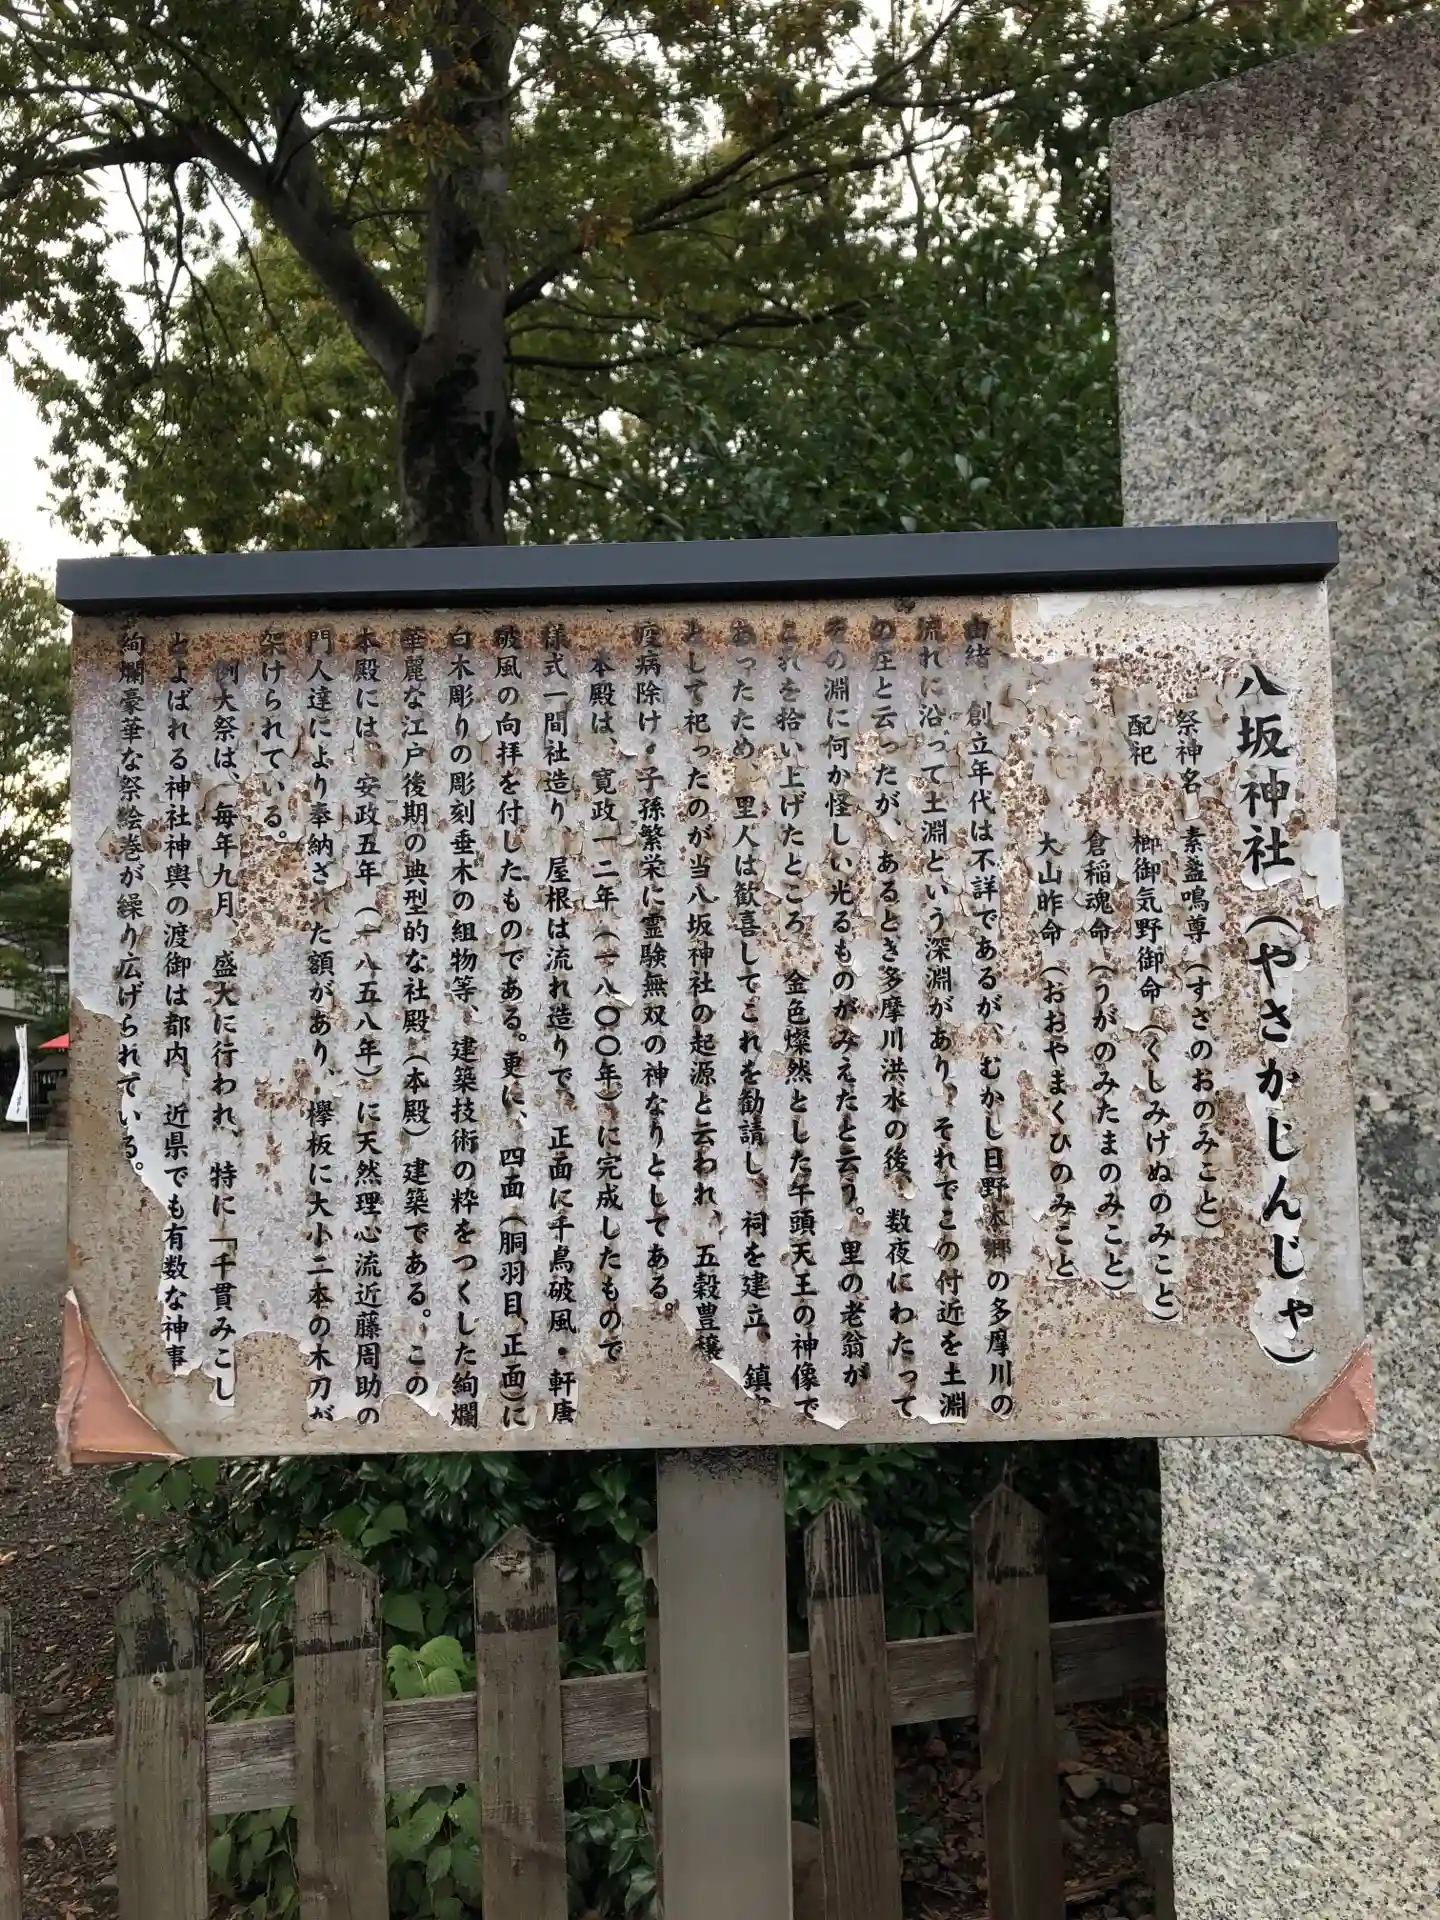 八坂神社（やさかじんじゃ）
祭神名　素盞嗚尊（すさのおのみこと）
配祀　櫛御気野御命（くしみけぬのみこと）
倉稲魂命（うがのみたまのみこと）
大山昨命（おおやまくひのみこと
由緒、創立年代は不詳であるが、むかし日野本郷の多摩川の
流れに沿って土淵という深淵があり、それでこの付近を土淵
の庄と云ったが、あるとき多摩川洪水の後、数夜にわたって
その淵に何か怪しい光るものがみえたと云う。里の老翁が
これを拾い上げたところ、金色燦然とした牛頭天王の神像で
あったため、里人は歓喜してこれを勧請し、祠を建立、鎮
として祀ったのが当八坂神社の起源と云われ、五穀豊穣
疫病除け・子孫繁栄に霊験無双の神なりとしてある。
本殿は、寛政一二年（一八〇〇年）に完成したもので
様式一間社造り、屋根は流れ造りで、正面に千鳥破風・軒唐
破風の向拝を付したものである。更に、四面（胴羽目、正面）に
白木彫りの彫刻垂木の組物等、建築技術の粋をつくした絢爛
華麗な江戸後期の典型的な社殿（本殿）建築である。この
本殿には、安政五年（一八五八年）に天然理心流近藤周助の
門人達により奉納された額があり、欅板に大小二本の木刀が
架けられている。
例大祭は、毎年九月、盛大に行われ、特に「千貫みこし
とよばれる神社神輿の渡御は都内、近県でも有数な神事
絢爛豪華な祭絵巻が繰り広げられている。